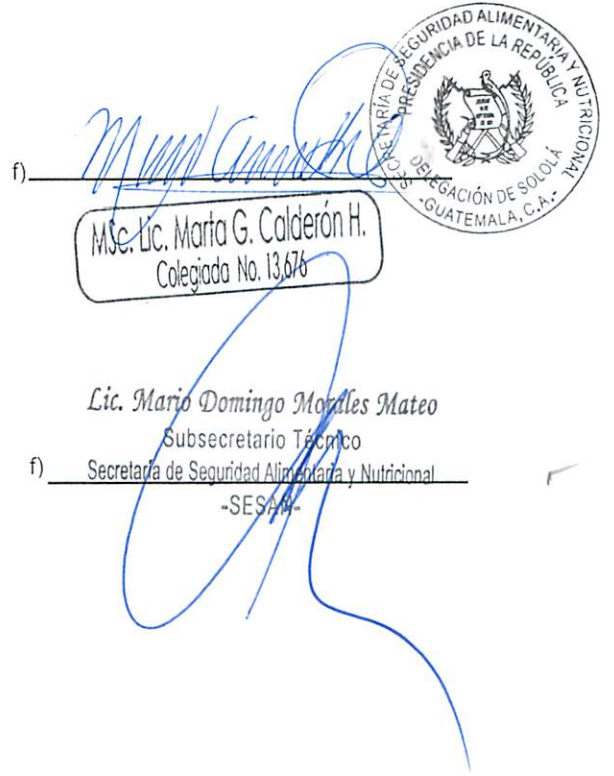 SECRETARÍA DE SEGURIDAD ALIMENTARIA Y NUTRICIONAL
PRESIDENCIA DE LA REPÚBLICA
DELEGACIÓN DE SOLOLÁ
-GUATEMALA, C.A.-
f)
MSc. Lic. Marta G. Calderón H.
Colegiada No. 13,676
Lic. Mario Domingo Morales Mateo
Subsecretario Técnico
f) Secretaría de Seguridad Alimentaria y Nutricional
-SESAN-